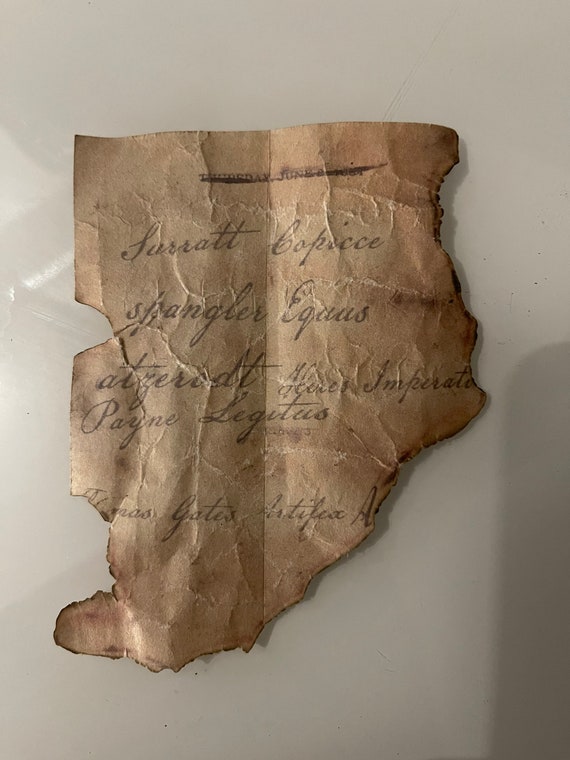 THURSDAY, JUNE
Surratt Copicce
spangler Equus
atzerodt Heres Imperato
Payne Legitus
Gates Artifex A